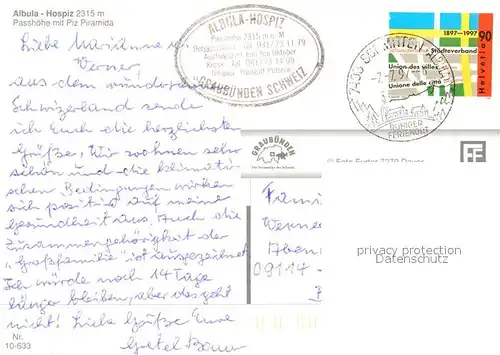 Albula - Hospiz 2315 m
Passhöhe mit Piz Piramida
Liebe Marianne u.
Werner
aus dem wunderbaren
Schweizerland sende
ich Euch die herzlichsten
Grüße, Wir wohnen sehr
schön und die klimati-
schen Bedingungen wirken
sich positiv auf meine
Gesundheit aus. Auch die
Zusammengehörigkeit der
"Großfamilie" ist ausgezeichnet
Ich würde noch 14 Tage
länger bleiben, aber das geht
nicht! Liebe Grüße Eure
Gretel
Nr.
10-633
ALBULA-HOSPIZ
Passhöhe 2315 m ü. M
Tel. 081/71
Tel. 081/73 14 09
GRAUBÜNDEN SCHWEIZ
7-7.97
RUHIGER
FERIENORT
1897-1997
90
Städteverband
Union des villes
Unione delle città
Helvetia
GRAUBÜNDEN
© Foto Furter 7270 Davos
Fami
Werner
09114
privacy protection
Datenschutz